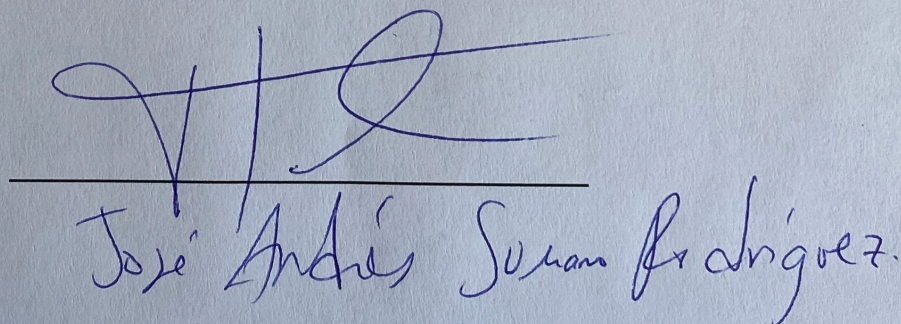 José Andrés Suman Rodríguez.